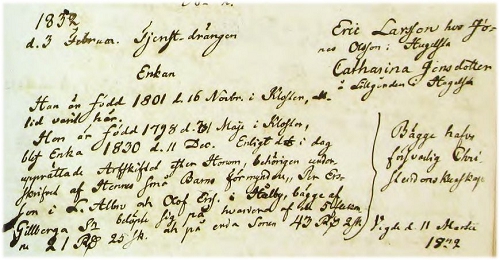 1832
d. 3 Februar. Tjenstedrängen
Enkan
Eric Larsson hos Jö-
nes Olsson i Hugelsta
Catharina Jonsdotter
i Hugelsta
Han är född 1801 d. 16 Novbr. i Kloster, all-
tid varit här.
Hon är född 1798 d. 31 Maji i Kloster,
blef Enka 1830 d. 11 Dec. Enligt i dag
upprättade Arfskifted efter Honom, behörigen under-
skrifved af Hennes Små Barns förmyndare, Per Ers-
son i L. Albro och Olof Ers. i Hälby, bägge af
Gillberga Sn belöpte sig på hvardera af de 5
21 Rd 25 sk. och på enda Sonen 43 Rd 2 sk
Bägge hafva
försvarlig Chri-
stendomskunskap
Vigde d. 11 Martii
1832